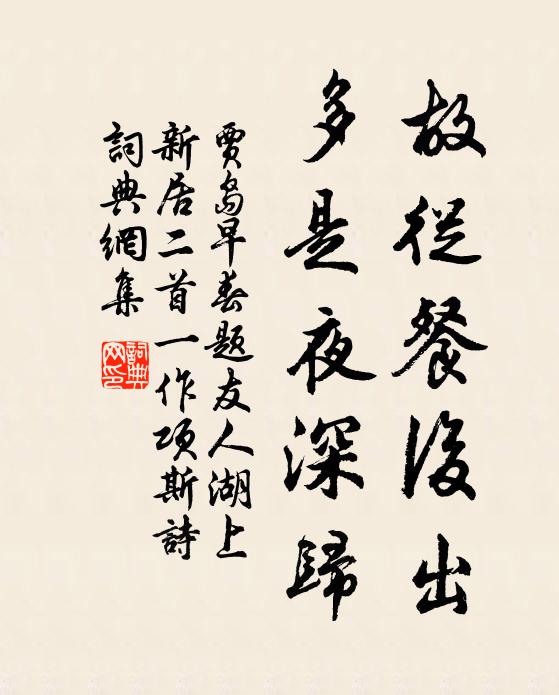 故從餐後出
多是夜深歸
賈島早春題友人湖上
新居二首一作項斯詩
詞典網集
詞典網印